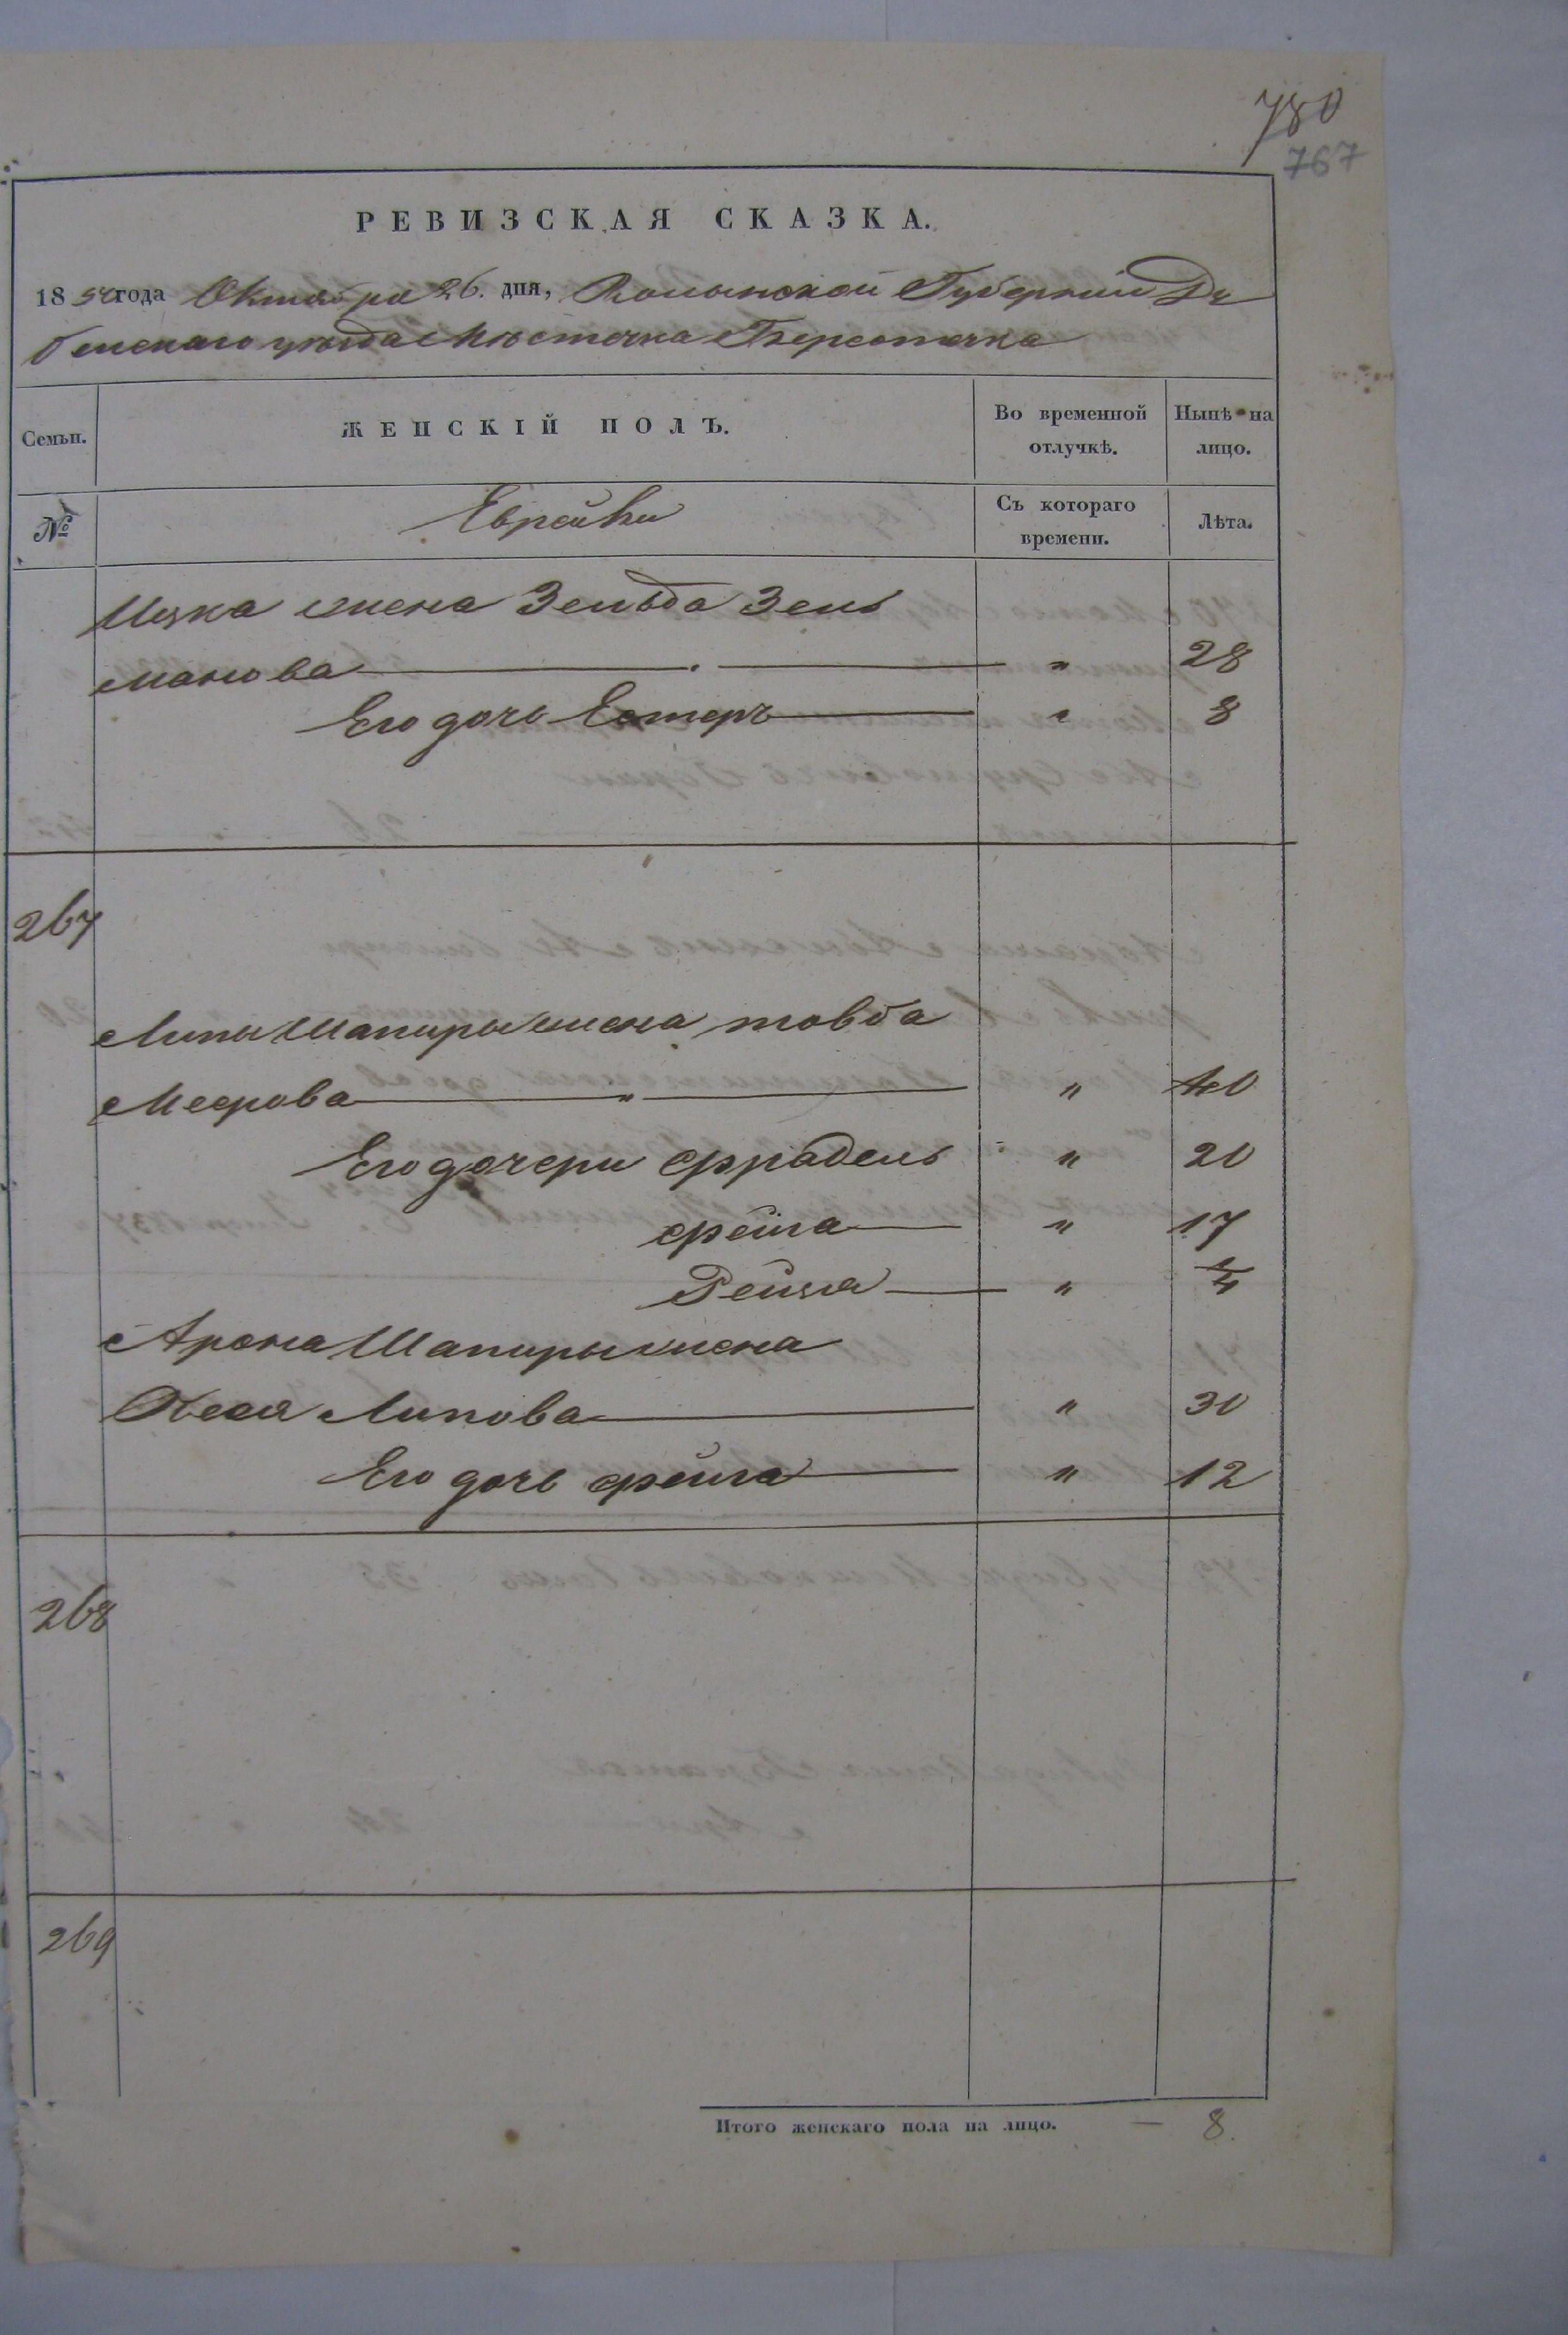 780
767
РЕВИЗСКАЯ СКАЗКА.
1850 года Октября 26. дня, Волынской Губерніи Ду
бенскаго уѣзда Мѣстечка Берестечка
Семьи. ЖЕНСКІЙ ПОЛЪ. Во временной отлучкѣ. Нынѣ на лицо.
№ Еврейки Съ котораго времени. Лѣта.
Ицка жена Зельда Зель
манова " 28
Его дочь Естеръ " 8
267
Липы Шапиры жена товба
Меерова " 40
Его дочери фрадель " 20
фейга " 17
Рейзя "
Арона Шапиры жена
Песя Липова " 30
Его дочь фейга " 12
268
269
Итого женскаго пола на лицо. — 8.